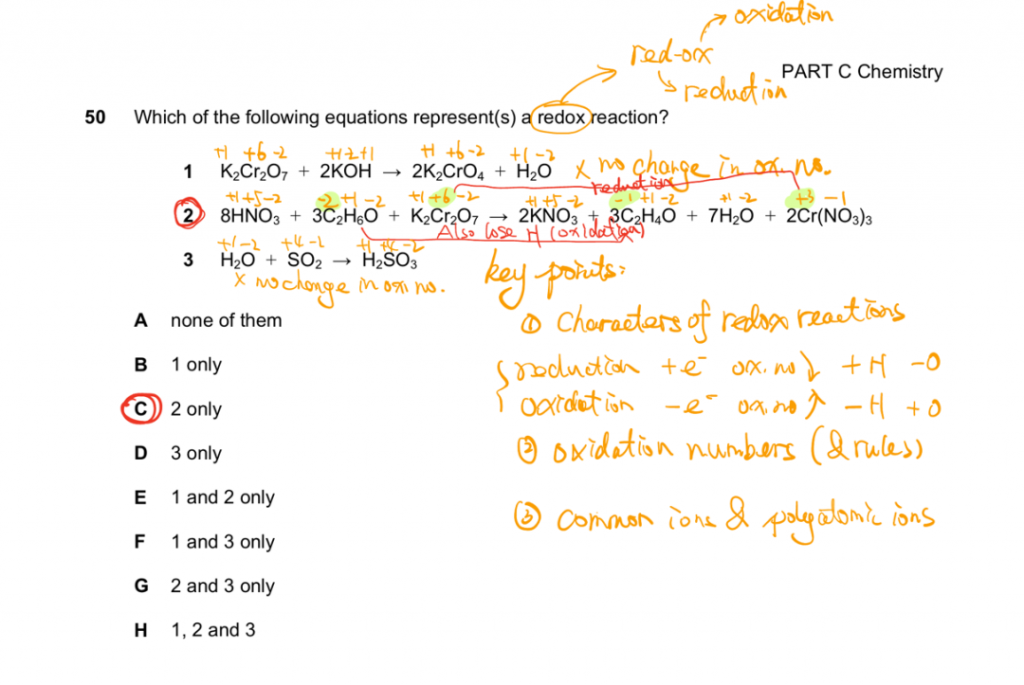 oxidation
red-ox
reduction
PART C Chemistry
50 Which of the following equations represent(s) a redox reaction?
+1 +6 -2 +1 -2 +1 +1 +6 -2 +1 -2
1 K₂Cr₂O₇ + 2KOH → 2K₂CrO₄ + H₂O x no change in ox. no.
reduction
+1 +5 -2 -2 +1 -2 +1 +6 -2 +1 +5 -2 -1 +1 -2 +1 -2 +3 -1
2 8HNO₃ + 3C₂H₆O + K₂Cr₂O₇ → 2KNO₃ + 3C₂H₄O + 7H₂O + 2Cr(NO₃)₃
Also lose H (oxidation)
+1 -2 +4 -2 +1 +4 -2
3 H₂O + SO₂ → H₂SO₃
x no change in oxi no.
key points:
① Characters of redox reactions
reduction +e⁻ ox. no ↓ +H -O
oxidation -e⁻ ox. no ↑ -H +O
② oxidation numbers (& rules)
③ common ions & polyatomic ions
A none of them
B 1 only
C 2 only
D 3 only
E 1 and 2 only
F 1 and 3 only
G 2 and 3 only
H 1, 2 and 3